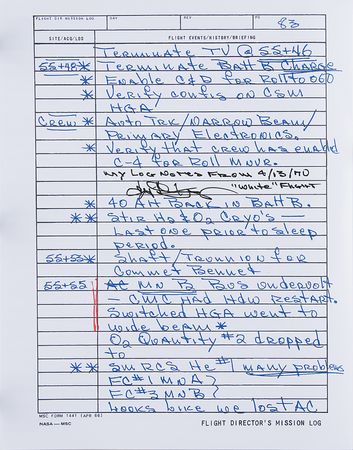 FLIGHT DIR MISSION LOG DAY REV PG 83
SITE/ACQ/LOS FLIGHT EVENTS/HISTORY/BRIEFING
Terminate TV @ 55+46
55+48* Terminate Batt B Charge
* Enable C&D for Roll to 060
* Verify config on CSM
HGA
Crew * Auto Trk/Narrow Beam/
Primary Electronics.
* Verify that crew has enabled
C-4 for Roll MNVR.
My Log Notes From 4/13/70
"White" Flight
* 40 AH Batt in Batt B.
** Stir H2 & O2 Cryo's —
Last one prior to sleep
period.
55+53* Shaft/Trunnion for
Commet Bennet
55+55 AC MN B2 Bus undervolt
— CMC Had Hdw Restart.
Switched HGA went to
wide beam *
O2 Quantity #2 dropped
to
** SM RCS He #1 many problems
FC#1 MNA }
FC#3 MNB }
Looks like we lost AC
MSC FORM 1447 (APR 66)
NASA — MSC FLIGHT DIRECTOR'S MISSION LOG